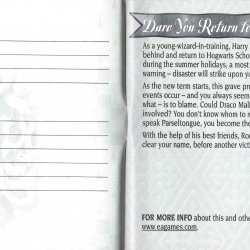 Dare You Return to
As a young-wizard-in-training, Harry
behind and return to Hogwarts Scho
during the summer holidays, a most
warning – disaster will strike upon yo
As the new term starts, this grave pr
events occur – and you always seem
what – is to blame. Could Draco Malf
involved? You don't know whom to s
speak Parseltongue, you become the
With the help of his best friends, Ro
clear your name, before another victi
FOR MORE INFO about this and othe
www.eagames.com.